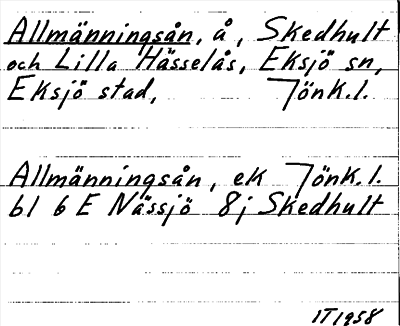 Allmänningsån, å, Skedhult
och Lilla Hässelås, Eksjö sn,
Eksjö stad, Jönk.l.
Allmänningsån, ek Jönk.l.
bl 6 E Nässjö 8j Skedhult
IT1958